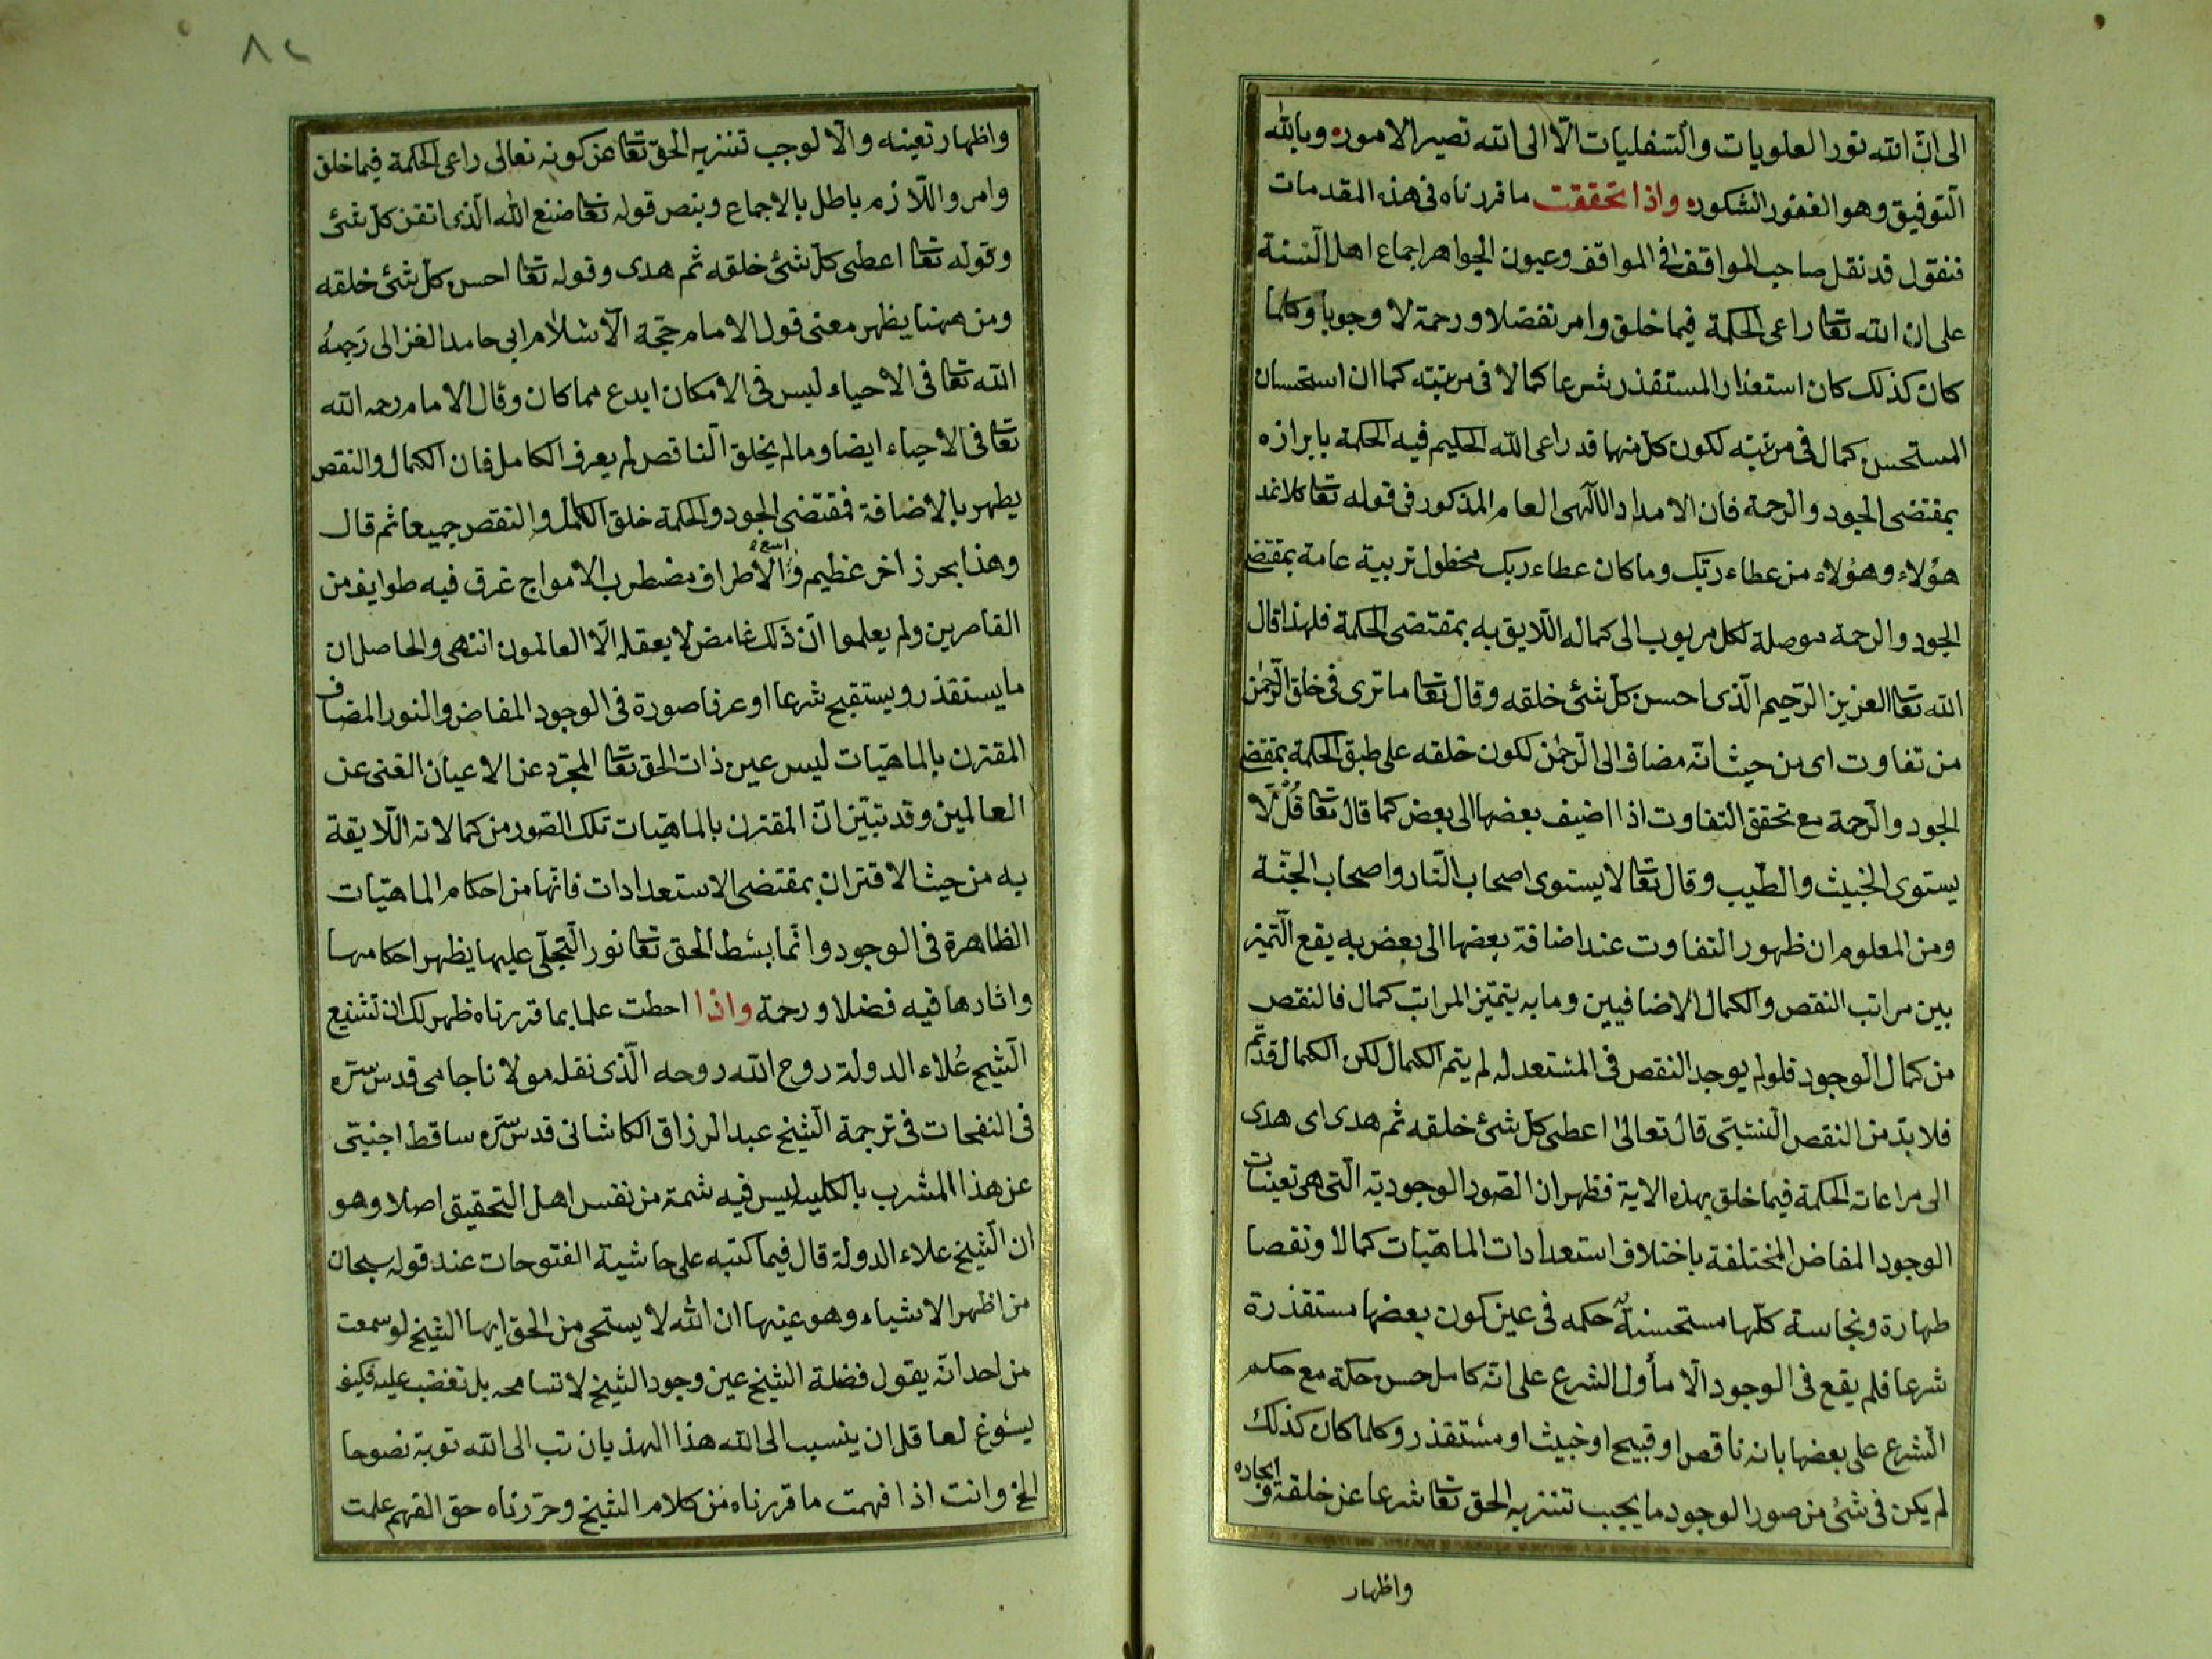 الى ان الله نور العلويات والسفليات الا الى الله تصير الامور وبالله
التوفيق وهو الغفور الشكور واذا تحققت ما قررناه فى هذه المقدمات
فنقول قد نقل صاحب المواقف فى المواقف وعيون الجواهر اجماع اهل السنة
على ان الله تعا راعى الحكمة فيما خلق وامر تفضلا ورحمة لا وجوبا وكلما
كان كذلك كان استعذار المستقذر شرعا كمالا فى مرتبته كما ان استحسان
المستحسن كمال فى مرتبته لكون كل منهما قد راعى الله الحكيم فيه الحكمة بابرازه
بمقتضى الجود والرحمة فان الامداد الالهى العام المذكور فى قوله تعا كلا نمد
هؤلاء وهؤلاء من عطاء ربك وما كان عطاء ربك محظول تربية عامة بمقتضى
الجود والرحمة موصلة لكل مربوب الى كماله اللايق به بمقتضى الحكمة فلهذا قال
الله تعا العزيز الرحيم الذى احسن كل شئ خلقه وقال تعا ما ترى فى خلق الرحمن
من تفاوت اى من حيث انه مضاف الى الرحمن لكون خلقه على طبق الحكمة بمقتضى
الجود والرحمة مع تحقق التفاوت اذا اضيف بعضها الى بعض كما قال تعا قُل لا
يستوى الخبيث والطيب وقال تعا لا يستوى اصحاب النار واصحاب الجنة
ومن المعلوم ان ظهور التفاوت عند اضافة بعضها الى بعض به يقع التميز
بين مراتب النقص والكمال الاضافيين وما به يتميز المراتب كمال فالنقص
من كمال الوجود فلو لم يوجد النقص فى المستعد له لم يتم الكمال لكن الكمال قد تم
فلا بد من النقص النسبتى قال تعالى اعطى كل شئ خلقه ثم هدى اى هدى
الى مراعاته الحكمة فيما خلق بهذه الاية فظهر ان الصور الوجودية التى هى تعينات
الوجود المفاض المختلفة باختلاف استعدادات الماهيات كمالا ونقصا
طهارة ونجاسة كلها مستحسنة حكمه فى عين كون بعضها مستقذرة
شرعا فلم يقع فى الوجود الا ما أول الشرع على انه كامل حسن حكة مع حكم
الشرع على بعضها بانه ناقص او قبيح او خبيث او مستقذر وكلما كان كذلك
لم يكن فى شئ من صور الوجود ما يجب تنزيه الحق تعا شرعا عن خلقة و ايجاده
واظهار
٨٢
واظهار تعينه والا لوجب تنزيه الحق تعا عن كونه تعالى راعى الحكمة فيما خلق
وامر واللازم باطل بالاجماع وبنص قوله تعا صنع الله الذى اتقن كل شئ
وقوله تعا اعطى كل شئ خلقه ثم هدى وقوله تعا احسن كل شئ خلقه
ومن ههنا يظهر معنى قول الامام حجة الاسلام ابى حامد الغزالى رَحِمهُ
الله تعا فى الاحياء ليس فى الامكان ابدع مما كان وقال الامام رحمه الله
تعا فى الاحياء ايضا وما لم يخلق الناقص لم يعرف الكامل فان الكمال والنقص
يظهر بالاضافة فمقتضى الجود والحكمة خلق الكامل والنقص جميعا ثم قال
وهذا بحر زاخر عظيم واسع الاطراف مضطرب الامواج غرق فيه طوايف من
القاصرين ولم يعلموا ان ذلك غامض لا يعقله الا العالمون انتهى والحاصل ان
ما يستقذر ويستقبح شرعا او عرفا صورة فى الوجود المفاض والنور المضاف
المقترن بالماهيات ليس عين ذات الحق تعا المجرد عن الاعيان الغنى عن
العالمين وقد تبين ان المقترن بالماهيات تلك الصور من كمالاته اللايقة
به من حيث الاقتران بمقتضى الاستعدادات فانها من احكام الماهيات
الظاهرة فى الوجود وانما بسط الحق تعا نور التجلى عليها يظهر احكامها
واثارها فيه فضلا ورحمة واذا احطت علما بما قررناه ظهر لك ان تشنيع
الشيخ عُلاء الدولة روح الله روحه الذى نقله مولانا جامى قدس سره
فى النفحات فى ترجمة الشيخ عبد الرزاق الكاشانى قدس سره ساقط اجنبتى
عن هذا المشرب بالكليه ليس فيه شمة من نفس اهل التحقيق اصلا وهو
ان الشيخ علاء الدولة قال فيما كتبه على حاشية الفتوحات عند قوله سبحان
من اظهر الاشياء وهو عينها ان الله لا يستحى من الحق ايها الشيخ لو سمعت
من احد انه يقول فضلة الشيخ عين وجود الشيخ لا تسامحه بل تغضب عليه فكيف
يسوغ لعاقل ان ينسب الى الله هذا الهذيان تب الى الله توبة نصوحا
الخ وانت اذا فهمت ما قررناه من كلام الشيخ وحررناه حق الفهم علمت